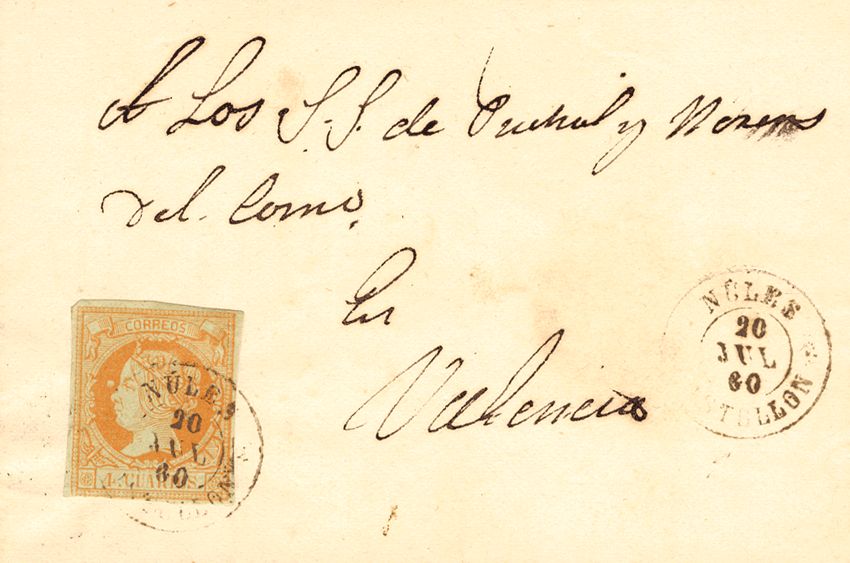 A Los S. S. de Puchol y Moreno
Del. Comº.
En
Valencia
NULES
20
JUL
60
CASTELLON
CORREOS
4 CUARTOS
NULES
20
JUL
60